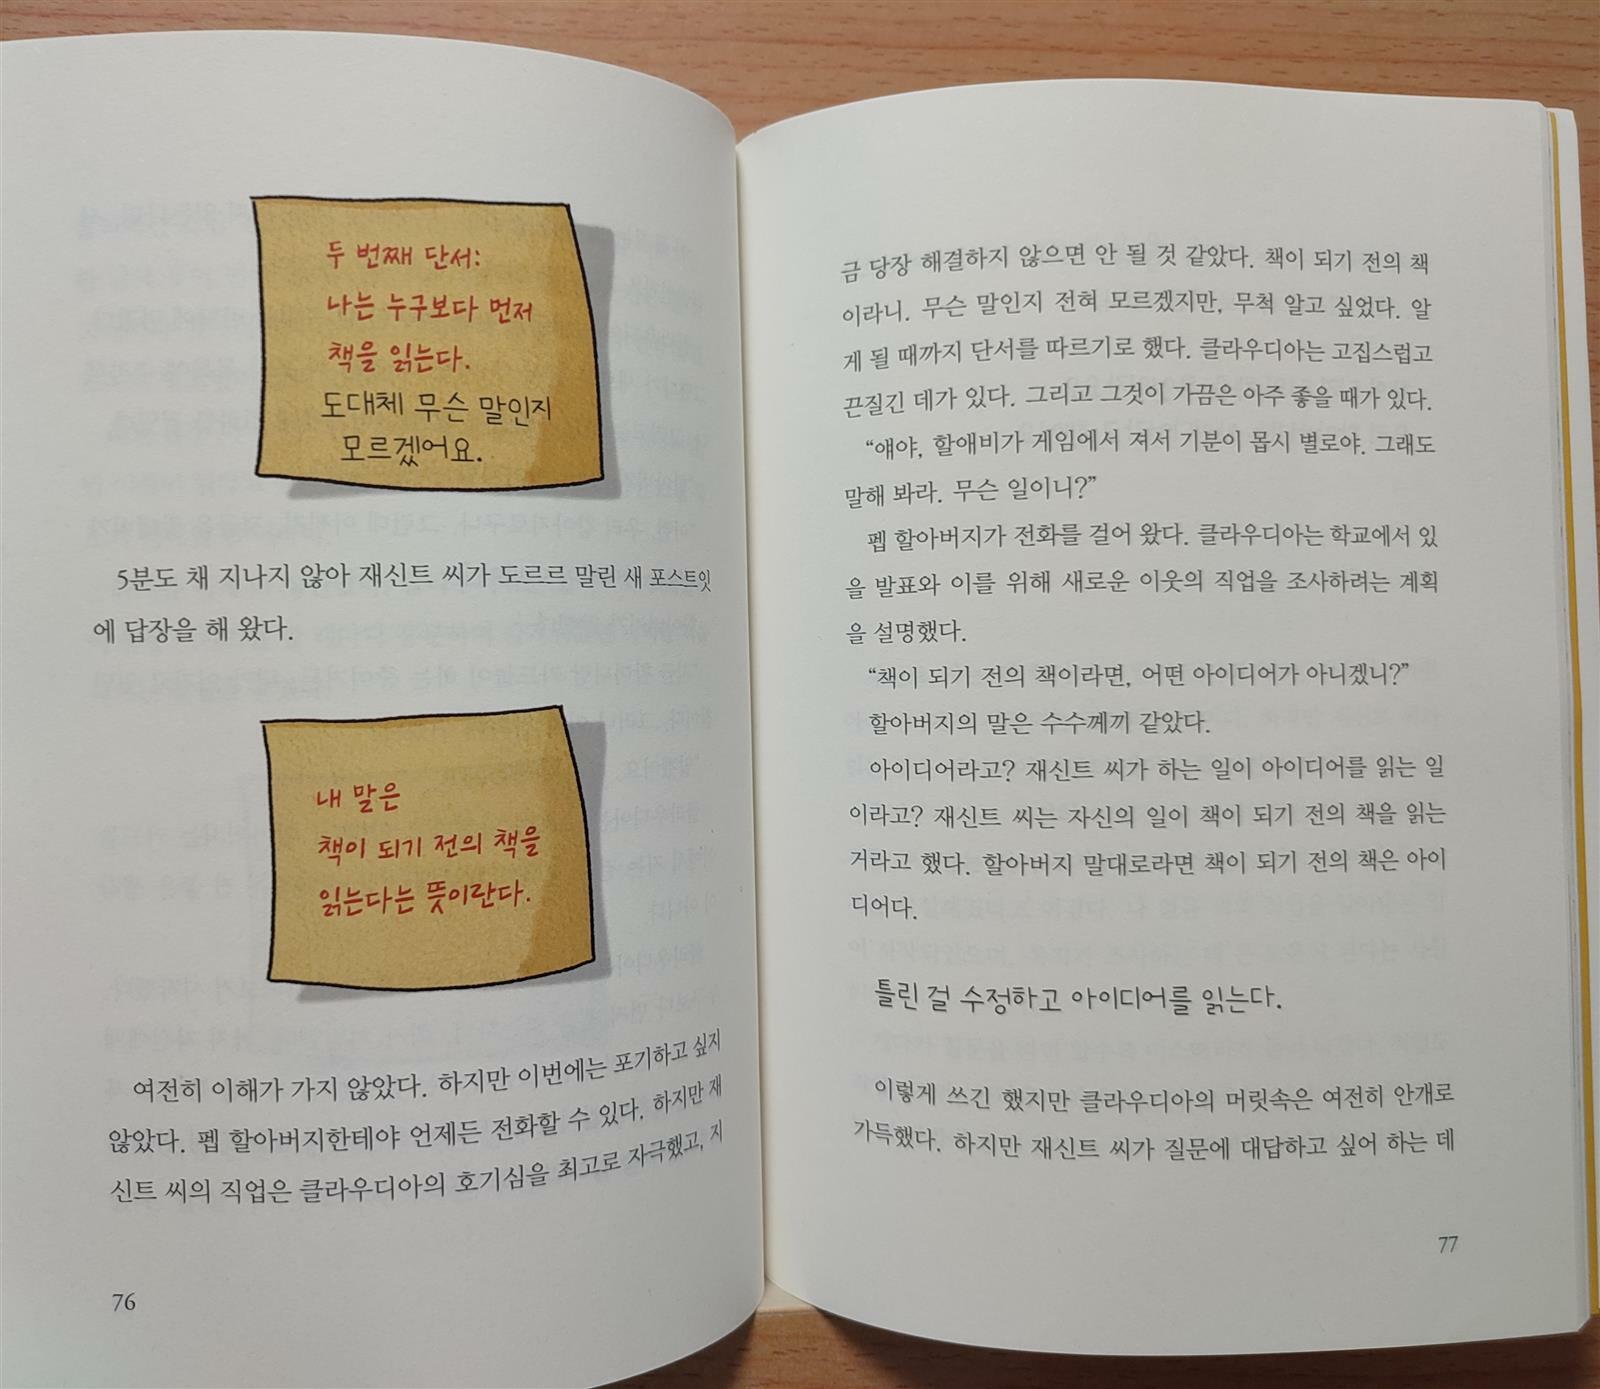 두 번째 단서:
나는 누구보다 먼저
책을 읽는다.
도대체 무슨 말인지
모르겠어요.
5분도 채 지나지 않아 재신트 씨가 도르르 말린 새 포스트잇
에 답장을 해 왔다.
내 말은
책이 되기 전의 책을
읽는다는 뜻이란다.
여전히 이해가 가지 않았다. 하지만 이번에는 포기하고 싶지
않았다. 펩 할아버지한테야 언제든 전화할 수 있다. 하지만 재
신트 씨의 직업은 클라우디아의 호기심을 최고로 자극했고, 지
76
금 당장 해결하지 않으면 안 될 것 같았다. 책이 되기 전의 책
이라니. 무슨 말인지 전혀 모르겠지만, 무척 알고 싶었다. 알
게 될 때까지 단서를 따르기로 했다. 클라우디아는 고집스럽고
끈질긴 데가 있다. 그리고 그것이 가끔은 아주 좋을 때가 있다.
“얘야, 할애비가 게임에서 져서 기분이 몹시 별로야. 그래도
말해 봐라. 무슨 일이니?”
펩 할아버지가 전화를 걸어 왔다. 클라우디아는 학교에서 있
을 발표와 이를 위해 새로운 이웃의 직업을 조사하려는 계획
을 설명했다.
“책이 되기 전의 책이라면, 어떤 아이디어가 아니겠니?”
할아버지의 말은 수수께끼 같았다.
아이디어라고? 재신트 씨가 하는 일이 아이디어를 읽는 일
이라고? 재신트 씨는 자신의 일이 책이 되기 전의 책을 읽는
거라고 했다. 할아버지 말대로라면 책이 되기 전의 책은 아이
디어다.
틀린 걸 수정하고 아이디어를 읽는다.
이렇게 쓰긴 했지만 클라우디아의 머릿속은 여전히 안개로
가득했다. 하지만 재신트 씨가 질문에 대답하고 싶어 하는 데
77